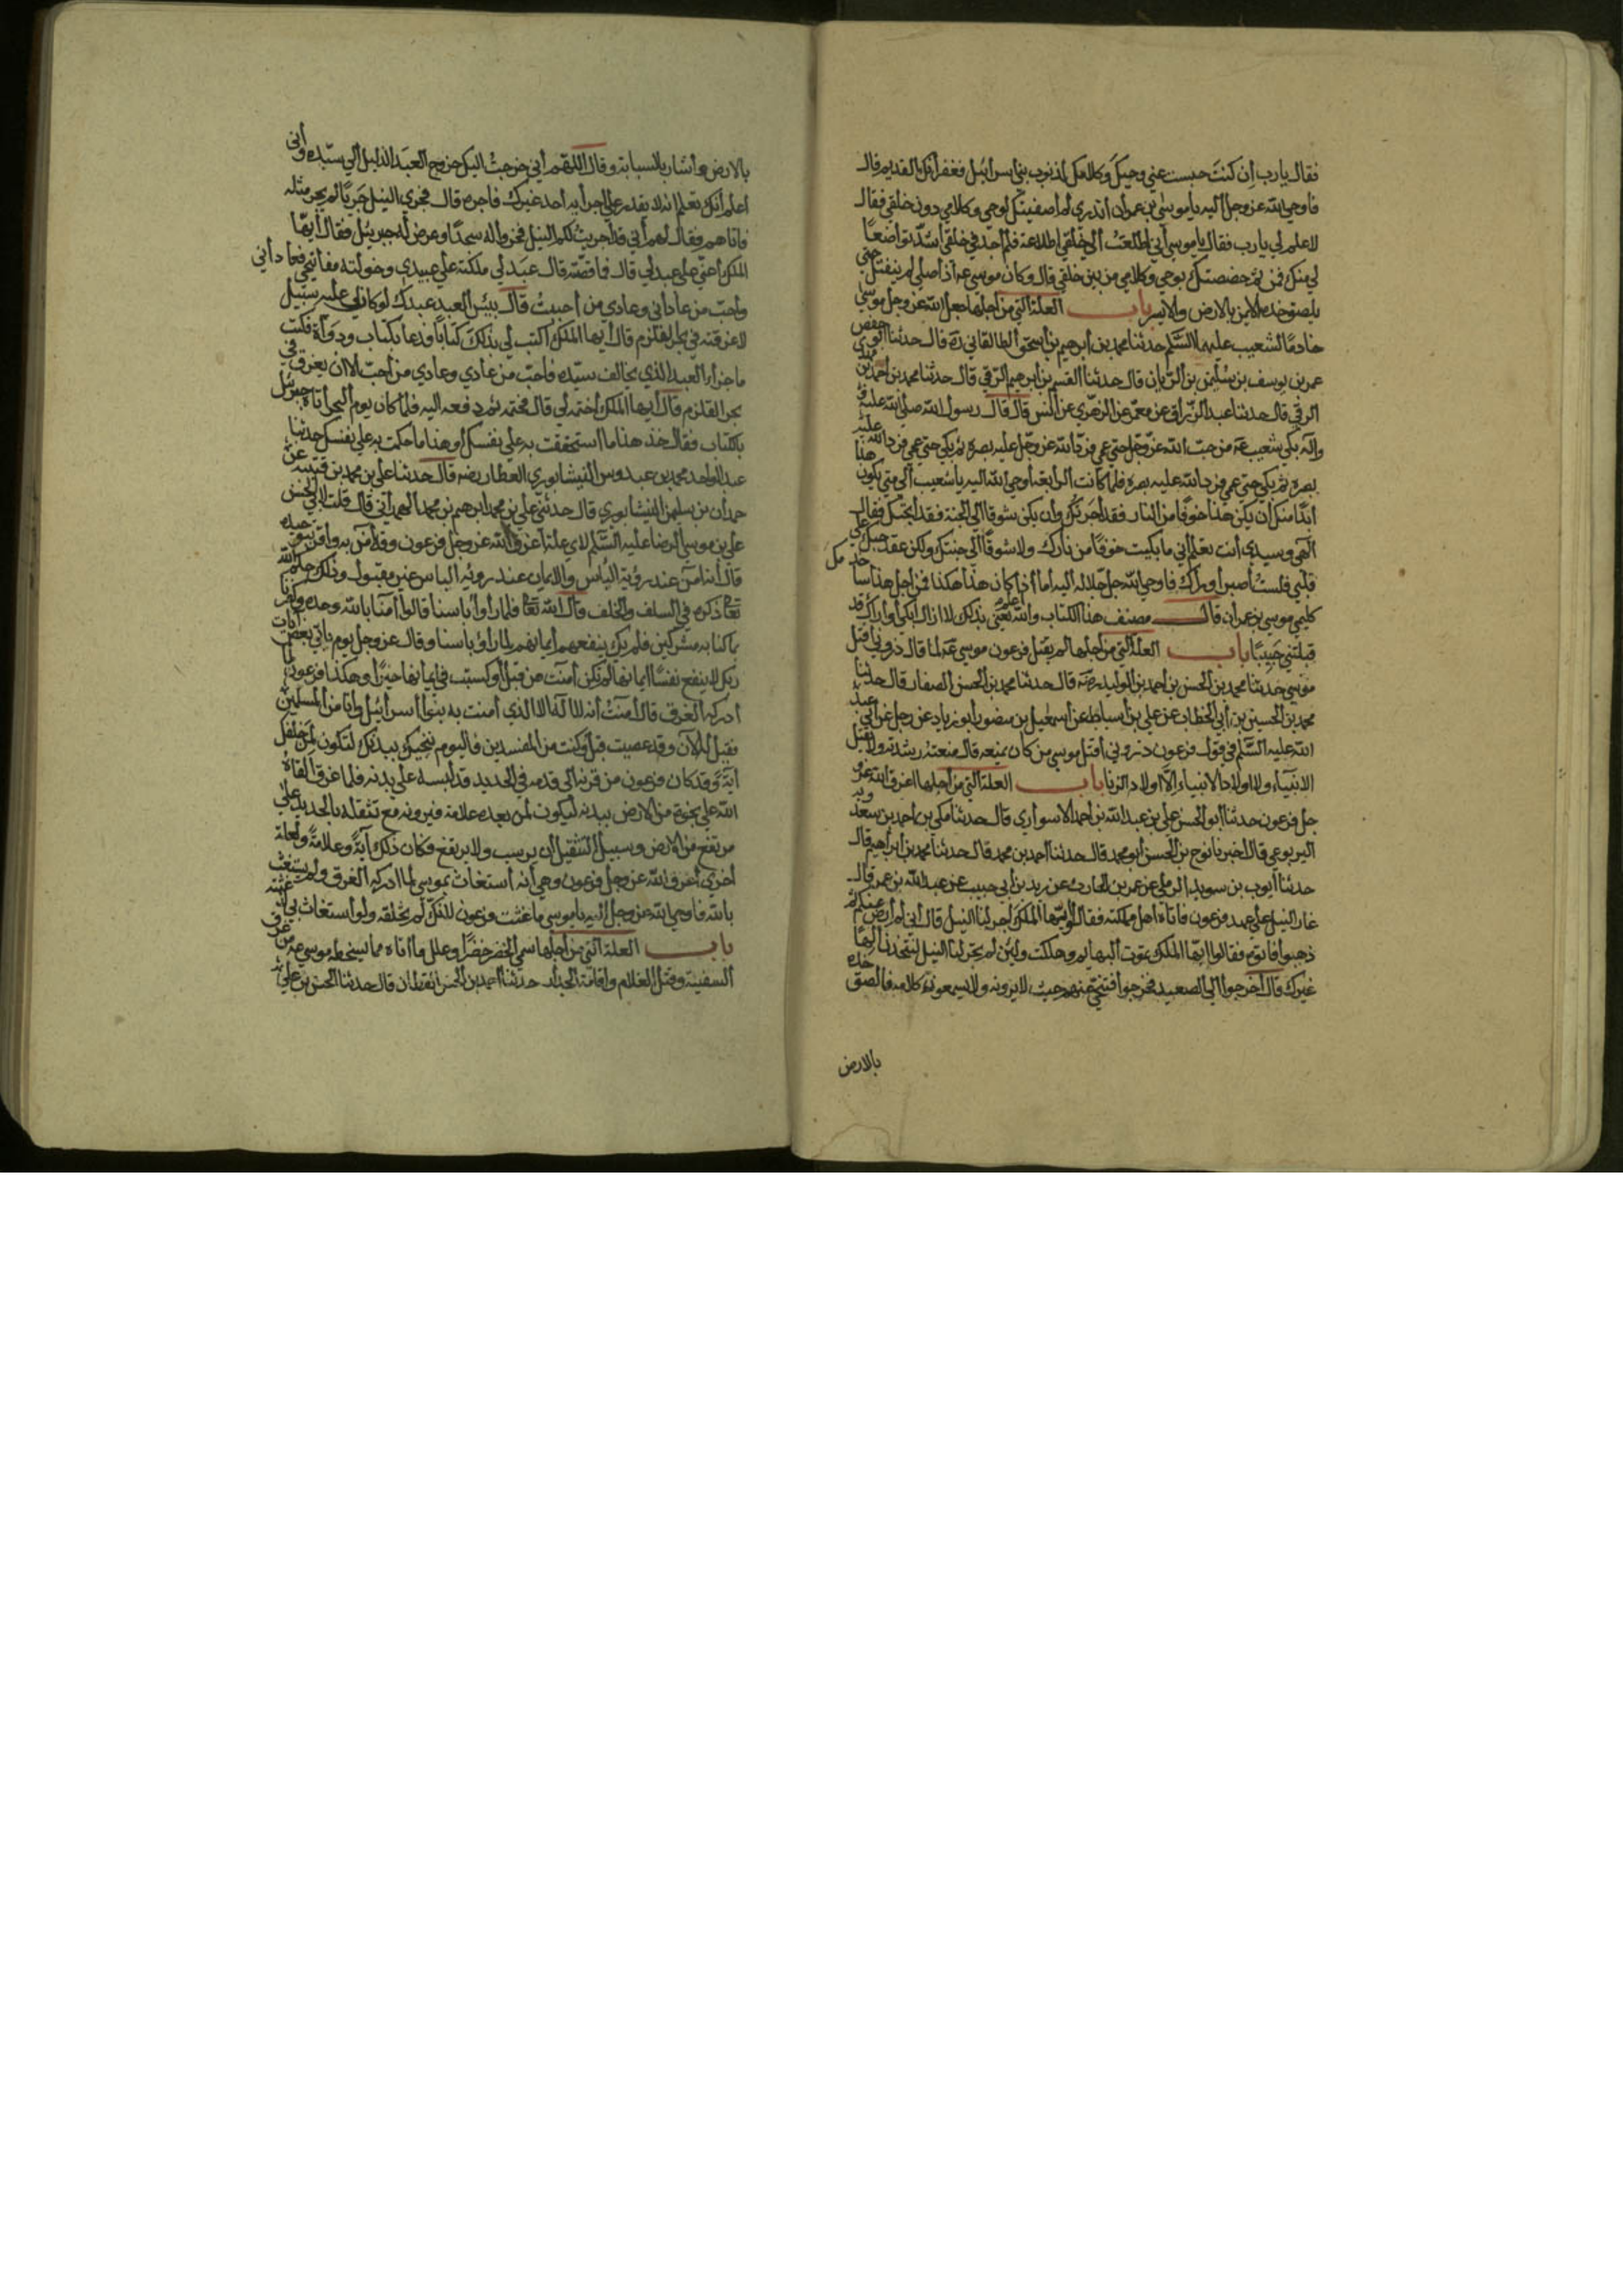 فقال يا رب ان كنت حبست عني وحيك وكلامك لذنوب بني اسرائيل فغفرانك القديم قال
فاوحي الله عز وجل اليه يا موسي بن عمران اتدري لم اصطفيتك لوحي وكلامي دون خلقي فقال
لا علم لي يا رب فقال يا موسي اني اطلعت الي خلقي اطلاعة فلم اجد في خلقي اشد تواضعا
لي منك فمن ثم خصصتك بوحي وكلامي من بين خلقي قال وكان موسي عه اذا صلي لم ينفتل حتي
يلصق خده الايمن بالارض والايسر باب العلة التي من اجلها جعل الله عز وجل موسي
خادما لشعيب عليهما السلم حدثنا محمد بن ابرهيم بن اسحق الطالقاني ره قال حدثنا ابو حفص
عمر بن يوسف بن سليمن بن الريان قال حدثنا القسم بن ابرهيم الرقي قال حدثنا محمد بن احمد بن مهدي
الرقي قال حدثنا عبد الرزاق عن معمر عن الزهري عن انس قال قال رسول الله صلي الله عليه
واله بكي شعيب عه من حب الله عز وجل حتي عمي فرد الله عز وجل عليه بصره ثم بكي حتي عمي فرد الله عليه
بصره ثم بكي حتي عمي فرد الله عليه بصره فلما كانت الرابعة اوحي الله اليه يا شعيب الي متي يكون هذا
ابدا منك ان يكن هذا خوفا من النار فقد اجرتك وان يكن شوقا الي الجنة فقد ابحتك فقال
الهي وسيدي انت تعلم اني ما بكيت خوفا من نارك ولا شوقا الي جنتك ولكن عقد حبك علي
قلبي فلست اصبر او اراك فاوحي الله جل جلاله اليه اما اذا كان هذا هكذا فمن اجل هذا سا خدمك
كليمي موسي بن عمران قال مصنف هذا الكتاب والله اعلم يعني بذلك لا ازال ابكي او اراك قد
قبلتني حبيبا باب العلة التي من اجلها لم يقتل فرعون موسي عه لما قال ذروني اقتل
موسي حدثنا محمد بن الحسن بن احمد بن الوليد رضه قال حدثنا محمد بن الحسن الصفار قال حدثنا
محمد بن الحسين بن ابي الخطاب عن علي بن اسباط عن اسمعيل بن منصور ابو زياد عن رجل عن ابي عبد
الله عليه السلم في قول فرعون ذروني اقتل موسي من كان يمنعه قال منعته رشدته ولا يقتل
الانبياء ولا اولاد الانبياء الا اولاد الزنا باب العلة التي من اجلها اغرق الله عز و
جل فرعون حدثنا ابو الحسن علي بن عبد الله بن احمد الاسواري قال حدثنا مكي بن احمد بن سعدويه
اليربوعي قال اخبرنا نوح بن الحسن ابو محمد قال حدثنا احمد بن محمد قال حدثنا محمد بن ابراهيم قال
حدثنا ايوب بن سويد الرملي عن عمر بن الحارث عن زيد بن ابي حبيب عن عبد الله بن عمر قال
غار النيل علي عهد فرعون فاتاه اهل مملكته فقالوا ايها الملك اجر لنا النيل قال اني لم ارض عنكم ثم
ذهبوا فاتوه فقالوا ايها الملك تموت البهايم وهلكت ولئن لم تجر لنا النيل لنتخذن الها
غيرك قال اخرجوا الي الصعيد فخرجوا فتنحي عنهم حيث لا يرونه ولا يسمعون كلامه فالصق خده
بالارض
بالارض واشار بالسبابة وقال اللهم اني خرجت اليك خروج العبد الذليل الي سيده واني
اعلم انك تعلم انه لا يقدر علي اجرائه احد غيرك فاجره قال فجري النيل جريا لم يجر مثله
فاتاهم فقال لهم اني قد اجريت لكم النيل فخروا له سجدا وعرض له جبرئيل فقال ايها
الملك اعني علي عبد لي قال فما قصته قال عبد لي ملكته علي عبيدي وخولته مفاتيحي فعاداني
واحب من عاداني وعادي من احببت قال بئس العبد عبدك لو كان لي عليه سبيل
لاغرقته في بحر القلزم قال ايها الملك اكتب لي بذلك كتابا فدعا بكتاب ودواة فكتب
ما جزاء العبد الذي يخالف سيده فاحب من عادي وعادي من احب الا ان يغرق في
بحر القلزم قال ايها الملك اختمه لي قال فختمه ثم دفعه اليه فلما كان يوم البحر اتاه جبرئيل
بالكتاب فقال خذ هذا ما استحققت به علي نفسك او هذا ما حكمت به علي نفسك حدثنا
عبد الواحد محمد بن عبدوس النيشابوري العطار رضه قال حدثنا علي بن محمد بن قتيبة عن
حمدان بن سليمن النيشابوري قال حدثني علي بن محمد ابرهيم بن محمد الهمداني قال قلت لابي الحسن
علي بن موسي الرضا عليه السلم لاي علة اغرق الله عز وجل فرعون وقد آمن به واقر بتوحيده
قال انه آمن عند رؤية الباس والايمان عند رؤية الباس غير مقبول وذلك حكم الله
تعا ذكره في السلف والخلف قال الله تعا فلما راوا باسنا قالوا آمنا بالله وحده وكفرنا
بما كنا به مشركين فلم يك ينفعهم ايمانهم لما راوا باسنا وقال عز وجل يوم ياتي بعض آيات
ربك لا ينفع نفسا ايمانها لم تكن آمنت من قبل او كسبت في ايمانها خيرا وهكذا فرعون لما
ادركه الغرق قال آمنت انه لا اله الا الذي آمنت به بنوا اسرائيل وانا من المسلمين
فقيل له الآن وقد عصيت قبل وكنت من المفسدين فاليوم ننجيك ببدنك لتكون لمن خلفك
آية وقد كان فرعون من قرنه الي قدمه في الحديد قد لبسه علي بدنه فلما غرق القاه
الله علي نجوة من الارض ببدنه ليكون لمن بعده علامة فيرونه مع تثقله بالحديد علي
مرتفع من الارض وسبيل الثقيل ان يرسب ولا يرتفع فكان ذلك آية وعلامة ولعلة
اخري اغرق الله عز وجل فرعون وهي انه استغاث بموسي لما ادركه الغرق ولم يستغث
بالله فاوحي الله عز وجل اليه يا موسي ما اغثت فرعون لانك لم تخلقه ولو استغاث بي لاغثته
باب العلة التي من اجلها سمي الخضر خضرا وعلل ما اتاه مما يسخطه موسي عه من خرق
السفينة وقتل الغلام واقامة الجدار حدثنا احمد بن الحسن القطان قال حدثنا الحسن بن علي